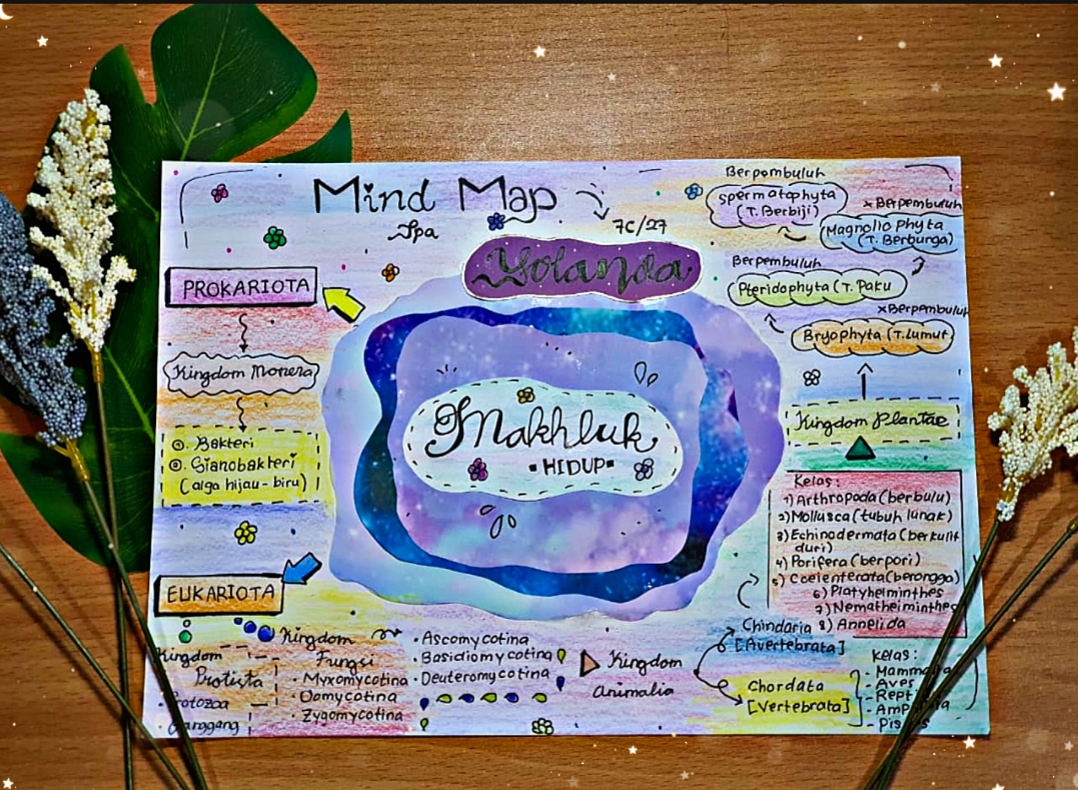 Mind Map
Ipa
7C/27
Yolanda
Makhluk
HIDUP
PROKARIOTA
Kingdom Monera
Bakteri
Sianobakteri
(alga hijau-biru)
EUKARIOTA
Kingdom
Protista
Kingdom
Fungsi
• Myxomycotina
• Oomycotina
• Zygomycotina
• Ascomycotina
• Basidiomycotina
• Deuteromycotina
Kingdom
Animalia
Chindaria
[Avertebrata]
Kelas:
1) Arthropoda (berbulu)
2) Mollusca (tubuh lunak)
3) Echinodermata (berkulit
duri)
4) Porifera (berpori)
5) Coelenterata (berongga)
6) Platyhelminthes
7) Nemathelminthes
8) Annelida
Chordata
[Vertebrata]
Kelas:
- Aves
Kingdom Plantae
Bryophyta (T. Lumut
x Berpembuluh
Pteridophyta (T. Paku
Berpembuluh
Magnolio Phyta
(T. Berbunga)
x Berpembuluh
Spermatophyta
(T. Berbiji)
Berpembuluh